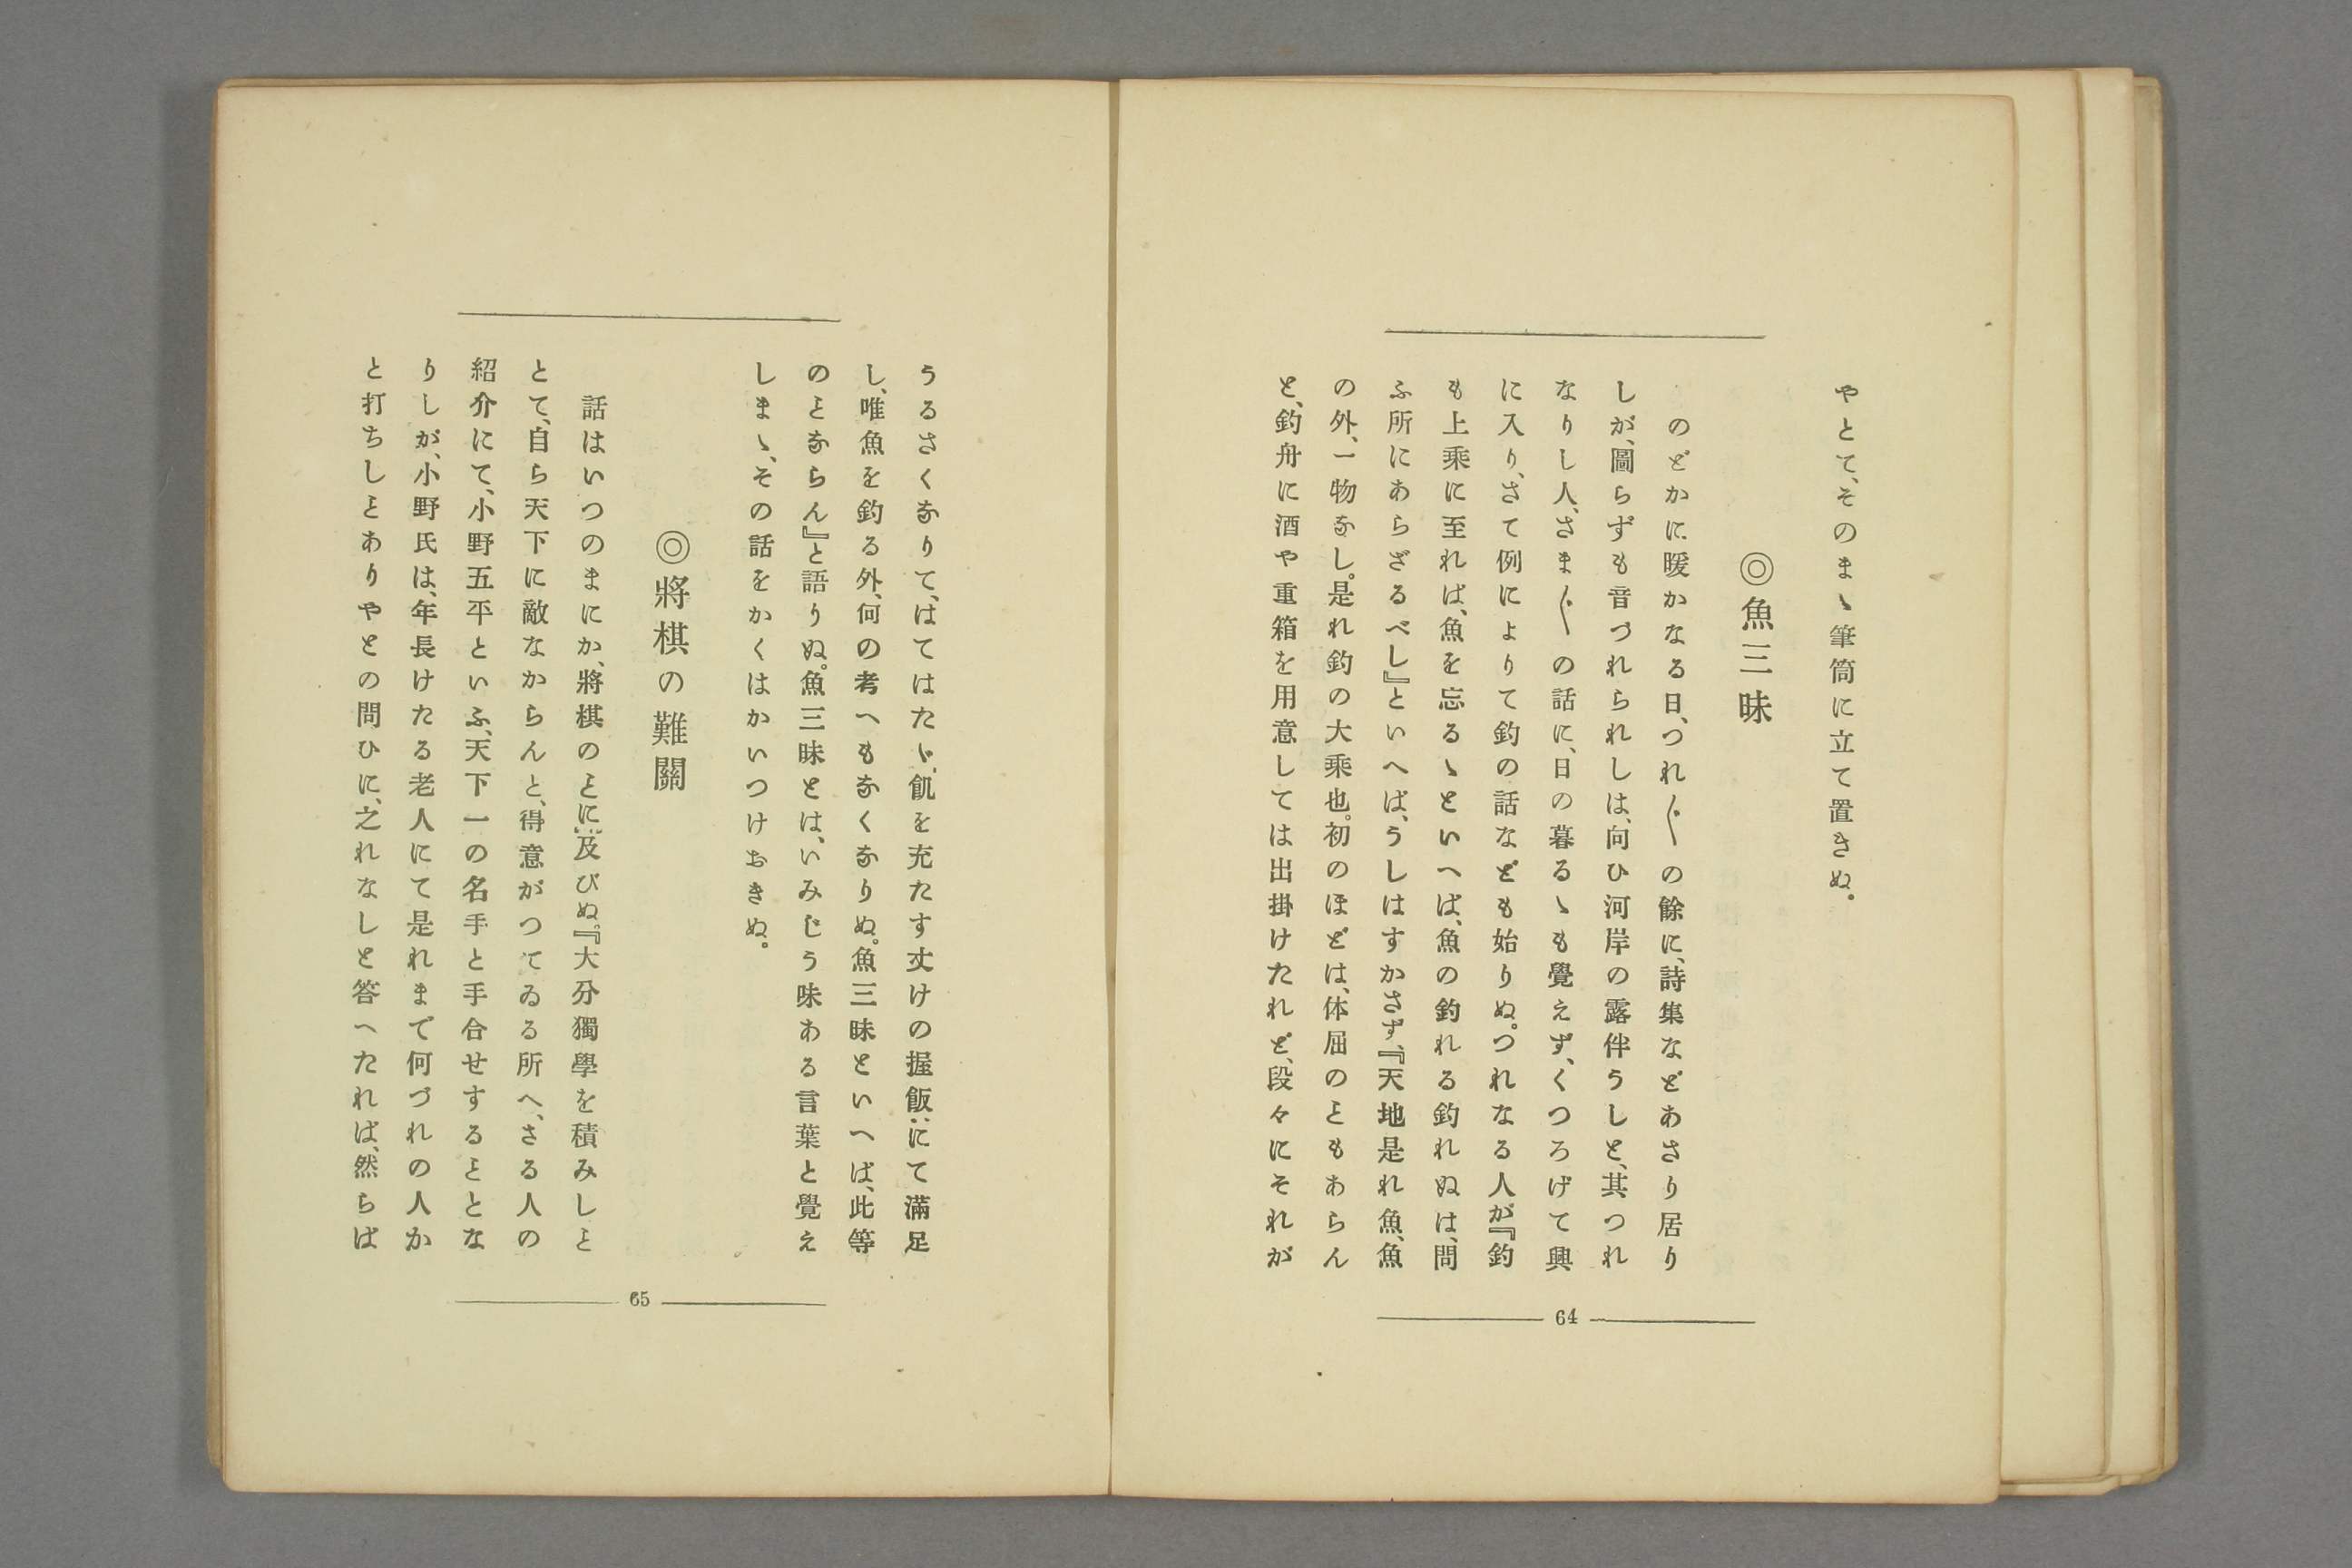 やとて、そのまゝ筆筒に立て置きぬ。
◎魚三昧
のどかに暖かなる日、つれ〲の餘に、詩集などあさり居り
しが、圖らずも音づれられしは、向ひ河岸の露伴うしと、其つれ
なりし人、さま〲の話に、日の暮るゝも覺えず、くつろげて興
に入り、さて例によりて釣の話なども始りぬ。つれなる人が『釣
も上乘に至れば、魚を忘るゝといへば、魚の釣れる釣れぬは、問
ふ所にあらざるべし』といへば、うしはすかさず、『天地是れ魚、魚
の外、一物なし。是れ釣の大乘也。初のほどは、体屈のヿもあらん
と、釣舟に酒や重箱を用意しては出掛けたれど、段々にそれが
64
うるさくなりて、はてはたゞ、飢を充たす丈けの握飯にて滿足
し、唯魚を釣る外、何の考へもなくなりぬ。魚三昧といへば、此等
のヿならん』と語りぬ。魚三昧とは、いみじう味ある言葉と覺え
しまゝ、その話をかくはかいつけおきぬ。
◎將棋の難關
話はいつのまにか、將棋のヿに及びぬ。『大分獨學を積みしヿ
とて、自ら天下に敵なからんと、得意がつてゐる所へ、さる人の
紹介にて、小野五平といふ、天下一の名手と手合せするヿとな
りしが、小野氏は、年長けたる老人にて是れまで何づれの人か
と打ちしヿありやとの問ひに、之れなしと答へたれば、然らば
65